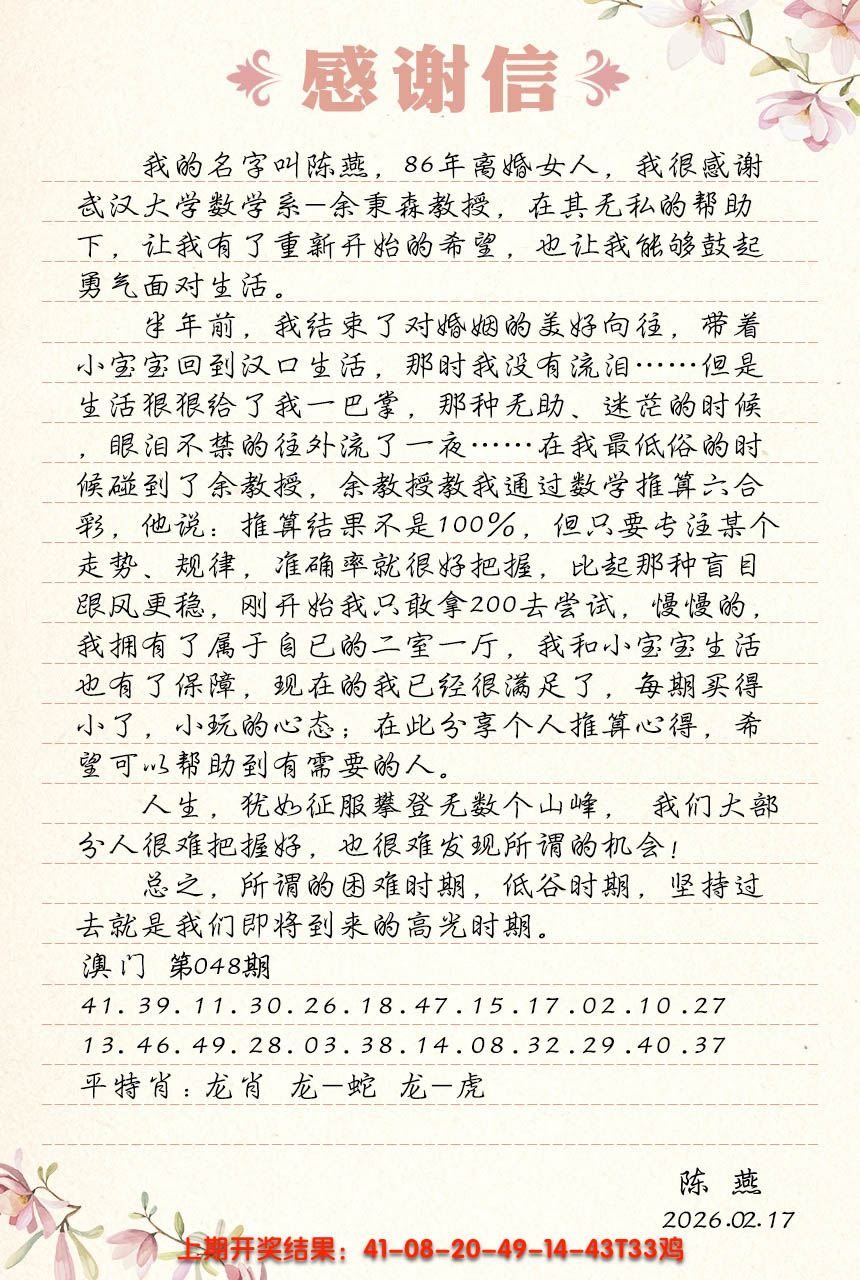 感谢信
我的名字叫陈燕，86年离婚女人，我很感谢
武汉大学数学系—余秉森教授，在其无私的帮助
下，让我有了重新开始的希望，也让我能够鼓起
勇气面对生活。
半年前，我结束了对婚姻的美好向往，带着
小宝宝回到汉口生活，那时我没有流泪……但是
生活狠狠给了我一巴掌，那种无助、迷茫的时候
，眼泪不禁的往外流了一夜……在我最低俗的时
候碰到了余教授，余教授教我通过数学推算六合
彩，他说：推算结果不是100%，但只要专注某个
走势、规律，准确率就很好把握，比起那种盲目
跟风更稳，刚开始我只敢拿200去尝试，慢慢的，
我拥有了属于自已的二室一厅，我和小宝宝生活
也有了保障，现在的我已经很满足了，每期买得
小了，小玩的心态；在此分享个人推算心得，希
望可以帮助到有需要的人。
人生，犹如征服攀登无数个山峰， 我们大部
分人很难把握好，也很难发现所谓的机会！
总之，所谓的困难时期，低谷时期，坚持过
去就是我们即将到来的高光时期。
澳门 第048期
41.39.11.30.26.18.47.15.17.02.10.27
13.46.49.28.03.38.14.08.32.29.40.37
平特肖：龙肖 龙—蛇 龙—虎
陈 燕
2026.02.17
上期开奖结果：41-08-20-49-14-43T33鸡